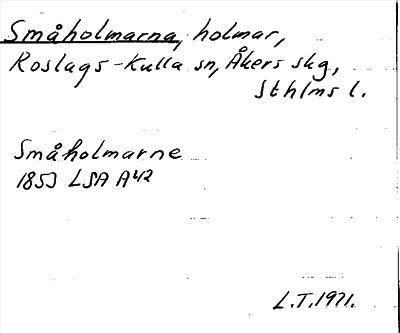 Småholmarna, holmar,
Roslags-Kulla sn, Åkers skg,
Sthlms l.
Småholmarne
1853 LSA A42
L.T.1971.